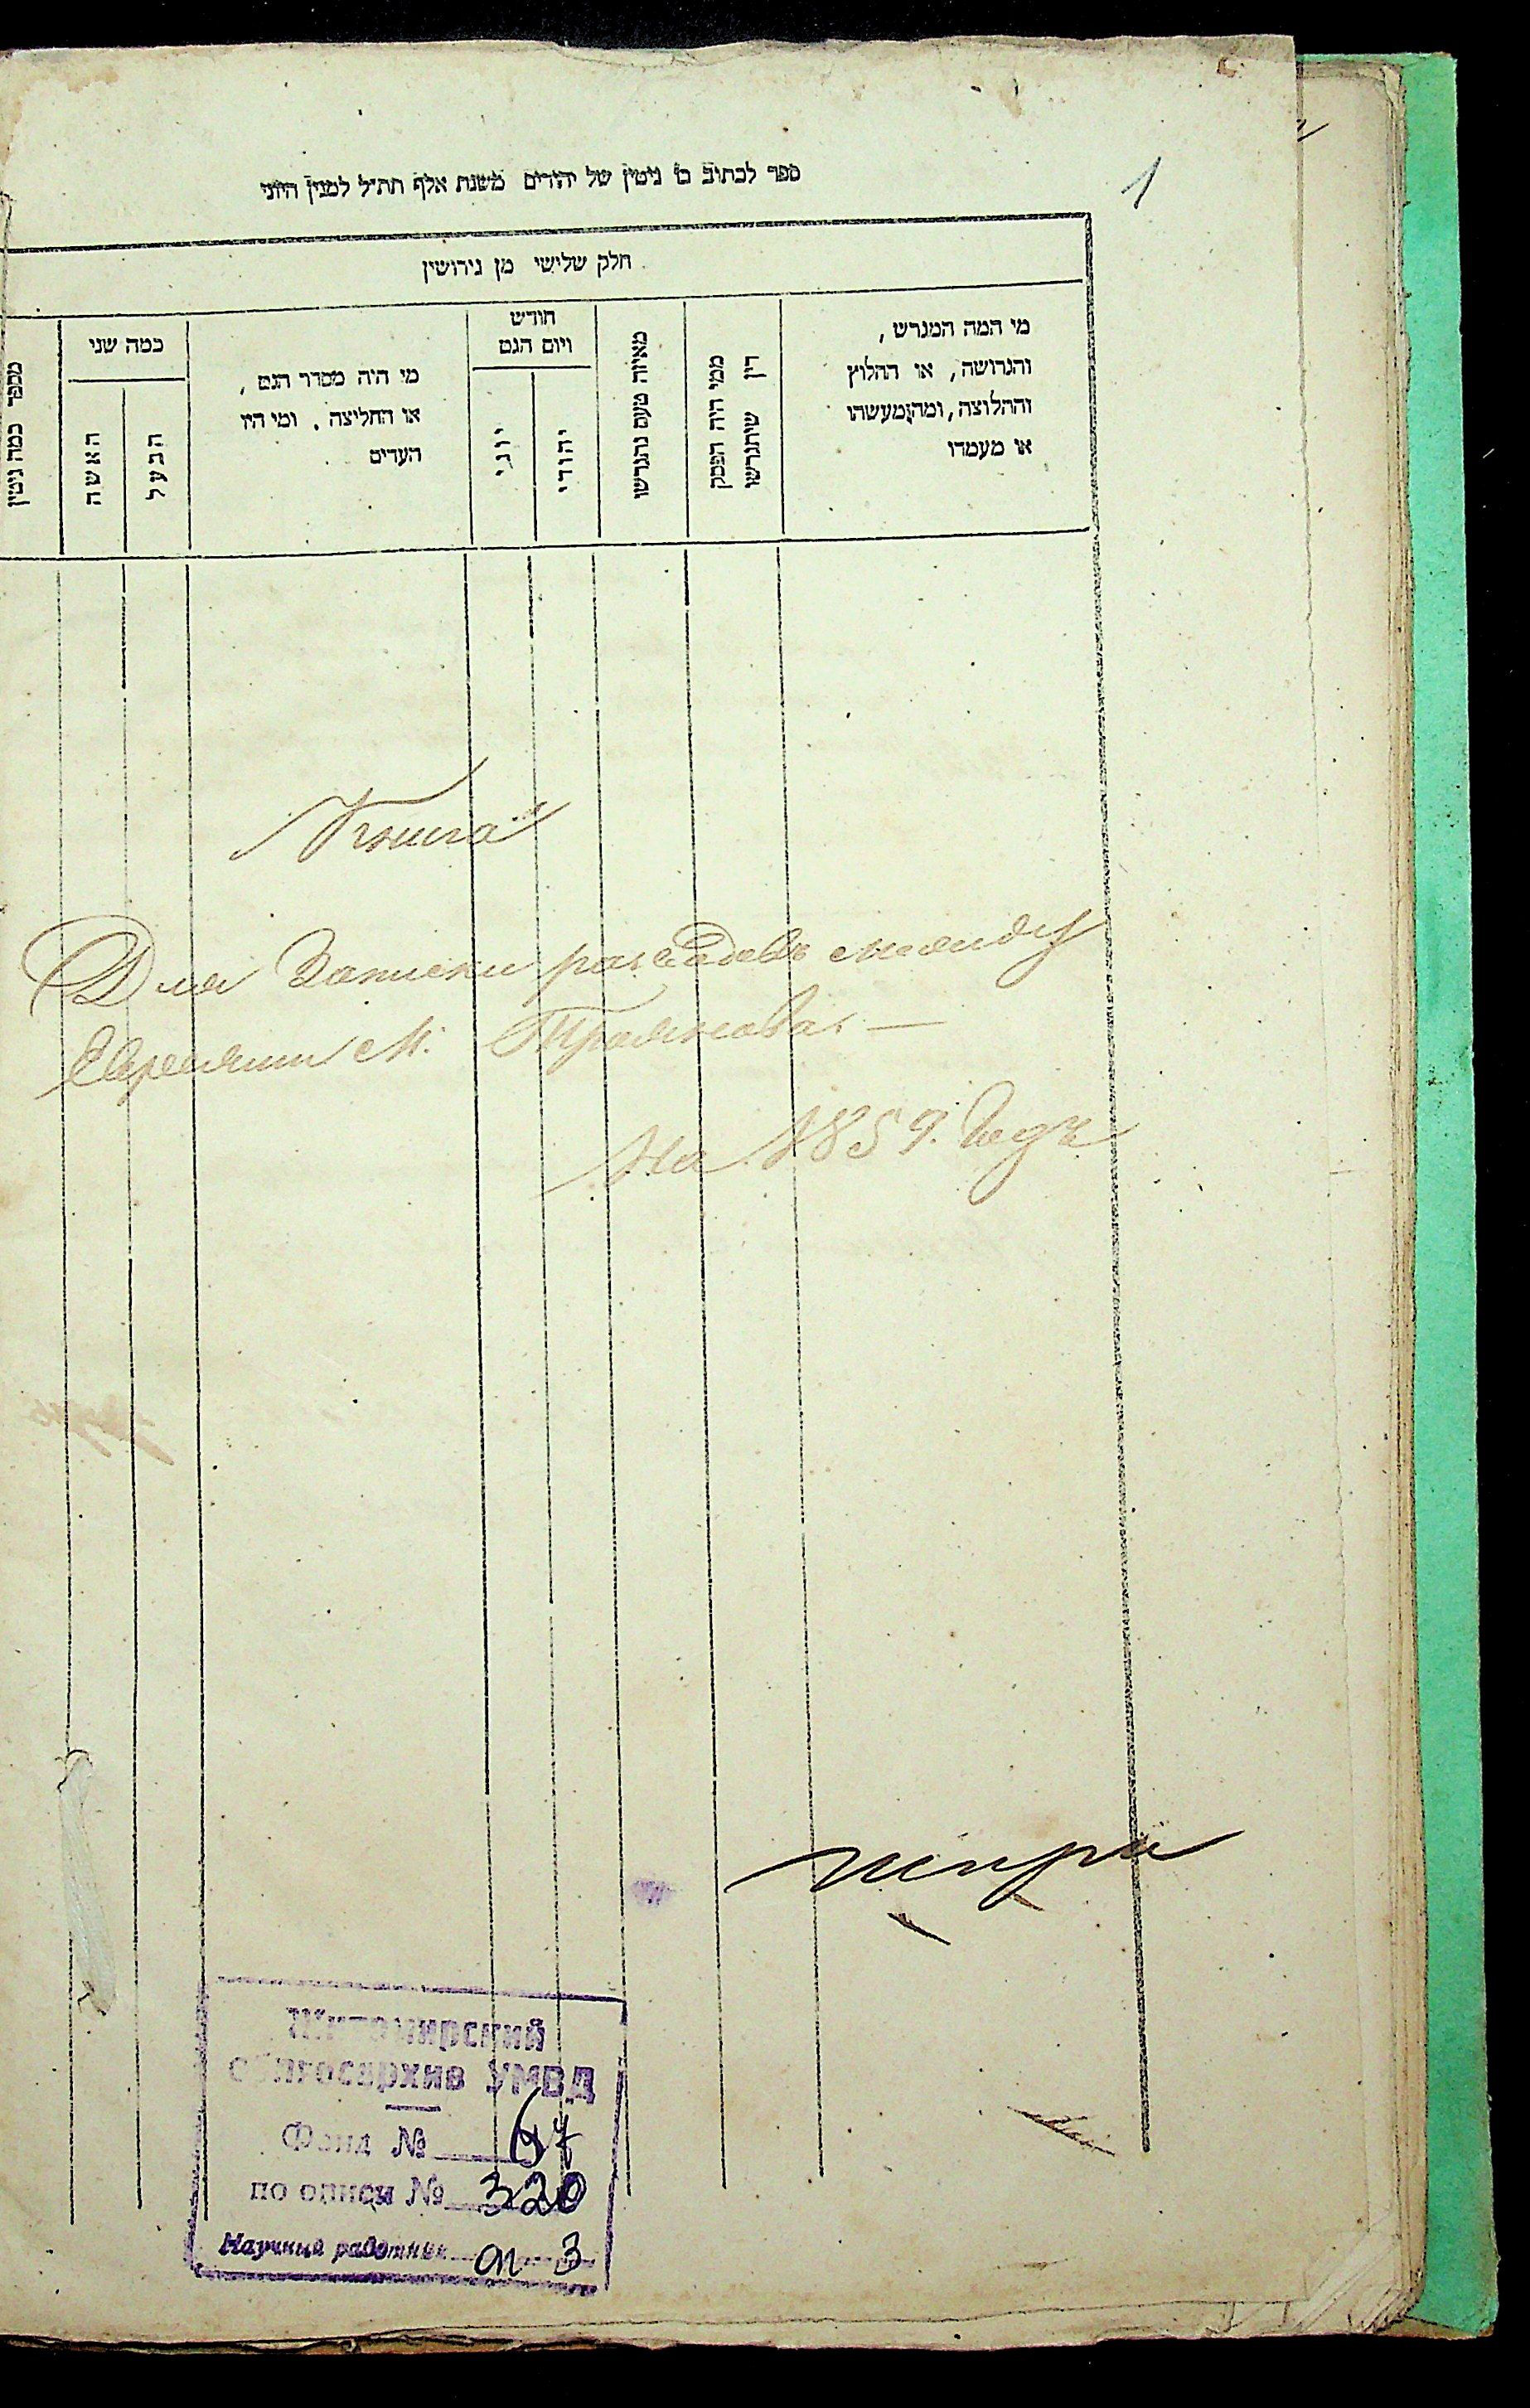 1
ספר לכתוב בו גיטין של יהודים משנת אלף תת״ל למנין היוני
חלק שלישי מן גירושין
מי המה המגרש,
והגרושה, או החלוץ
והחלוצה, ומה מעשהו
או מעמדו
ממי היה הפסק
דין שיתגרשו
מאיזה טעם נתגרשו
חודש
ויום הגט
יהודי
יוני
מי היה מסדר הגט,
או החליצה. ומי היו
העדים
כמה שני
הבעל
האשה
מספר כמה גיטין
Книга
Для Записки разводовъ между
Евреями М. Троянова
На 1859. Годъ
Житомирский
облгосархив УМВД
Фонд № 67
по описи № 320
Научный работник оп 3